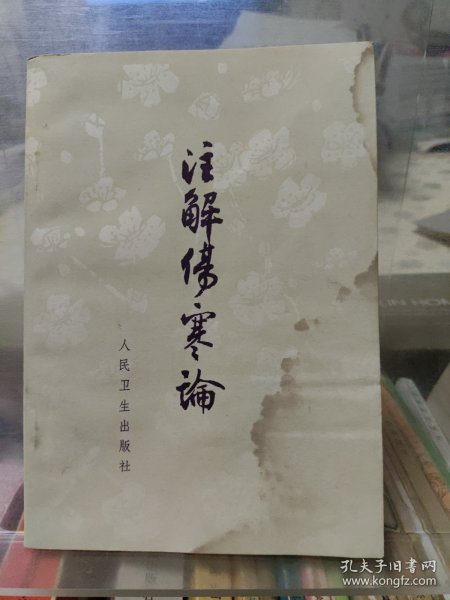 注解伤寒論
人民卫生出版社
LIN HOM
孔夫子旧书网
www.kongfz.com